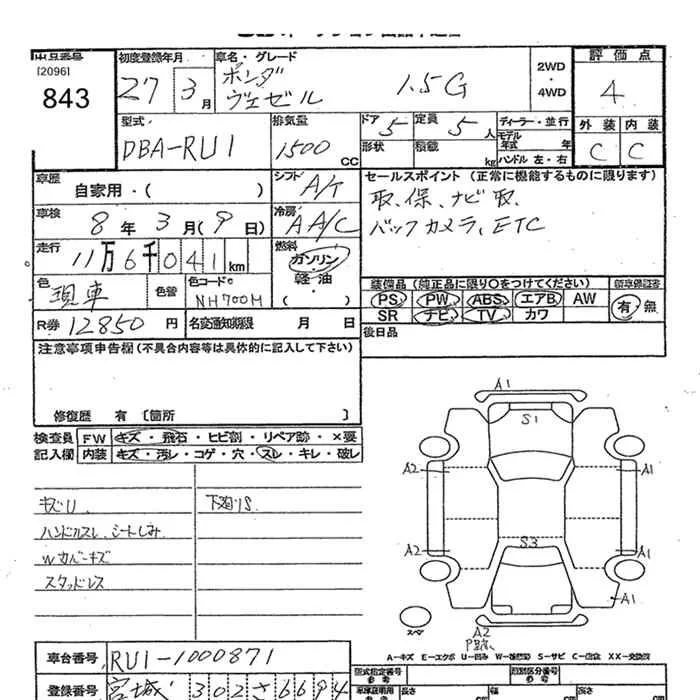 出品番号
[2096]
843
初度登録年月
27 3月
車名・グレード
ホンダ
ヴェゼル 1.5G
2WD
・
4WD
評価点
4
外装 内装
C C
型式
DBA-RU1
排気量
1500 CC
ドア 5
定員 5人
形状
積載 kg
ディーラー・並行
モデル年式 年
ハンドル 左・右
車歴
自家用・( )
シフト A/T
セールスポイント (正常に機能するものに限ります)
取、保、ナビ取、
バックカメラ、ETC
車検
8年 3月(9日)
冷房 AA/C
走行
11万6千041km
燃料
ガソリン
・
軽油
( )
色
現車
色替
色コード
NH700M
装備品 (純正品に限り○をつけてください)
PS PW ABS エアB AW
SR ナビ TV カワ
新車保証書
有・無
R券 12850円
名変通知期限 月 日
後日品
注意事項申告欄(不具合内容等は具体的に記入して下さい)
修復歴 有 [箇所 ]
検査員
記入欄
FW キズ・飛石・ヒビ割・リペア跡・×要
内装 キズ・汚レ・コゲ・穴・スレ・キレ・破レ
キズU
下廻りS
ハンドルスレ、シートしみ
Wカバーキズ
スタッドレス
A1
S1
A2 A1
S3
A2 A1
A1
スペア
A2
A-キズ E-エクボ U-凹み W-補修跡 S-サビ C-腐食 XX-交換済
車台番号 RU1-1000871
登録番号 宮城 302さ6694
型式指定番号
参考
類別区分番号
参考
車庫証明用
参考
長さ
幅
高さ